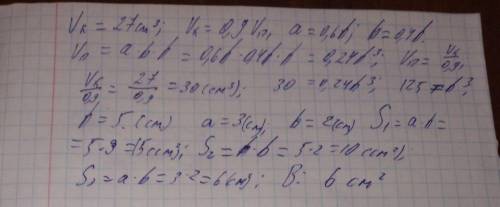 Vк = 27 см³; Vк = 0,9 Vп, a = 0,6h; b = 0,4h.
Vп = a·b·h = 0,6h·0,4h·h = 0,24h³; Vп = Vк/0,9;
Vк/0,9 = 27/0,9 = 30 (см³); 30 = 0,24h³; 125 = h³;
h = 5. (см) a = 3 (см), b = 2 (см) S₁ = a·h =
= 5·9 = 15 (см²); S₂ = h·b = 5·2 = 10 (см²);
S₃ = a·b = 3·2 = 6 (см²); В: 6 см²